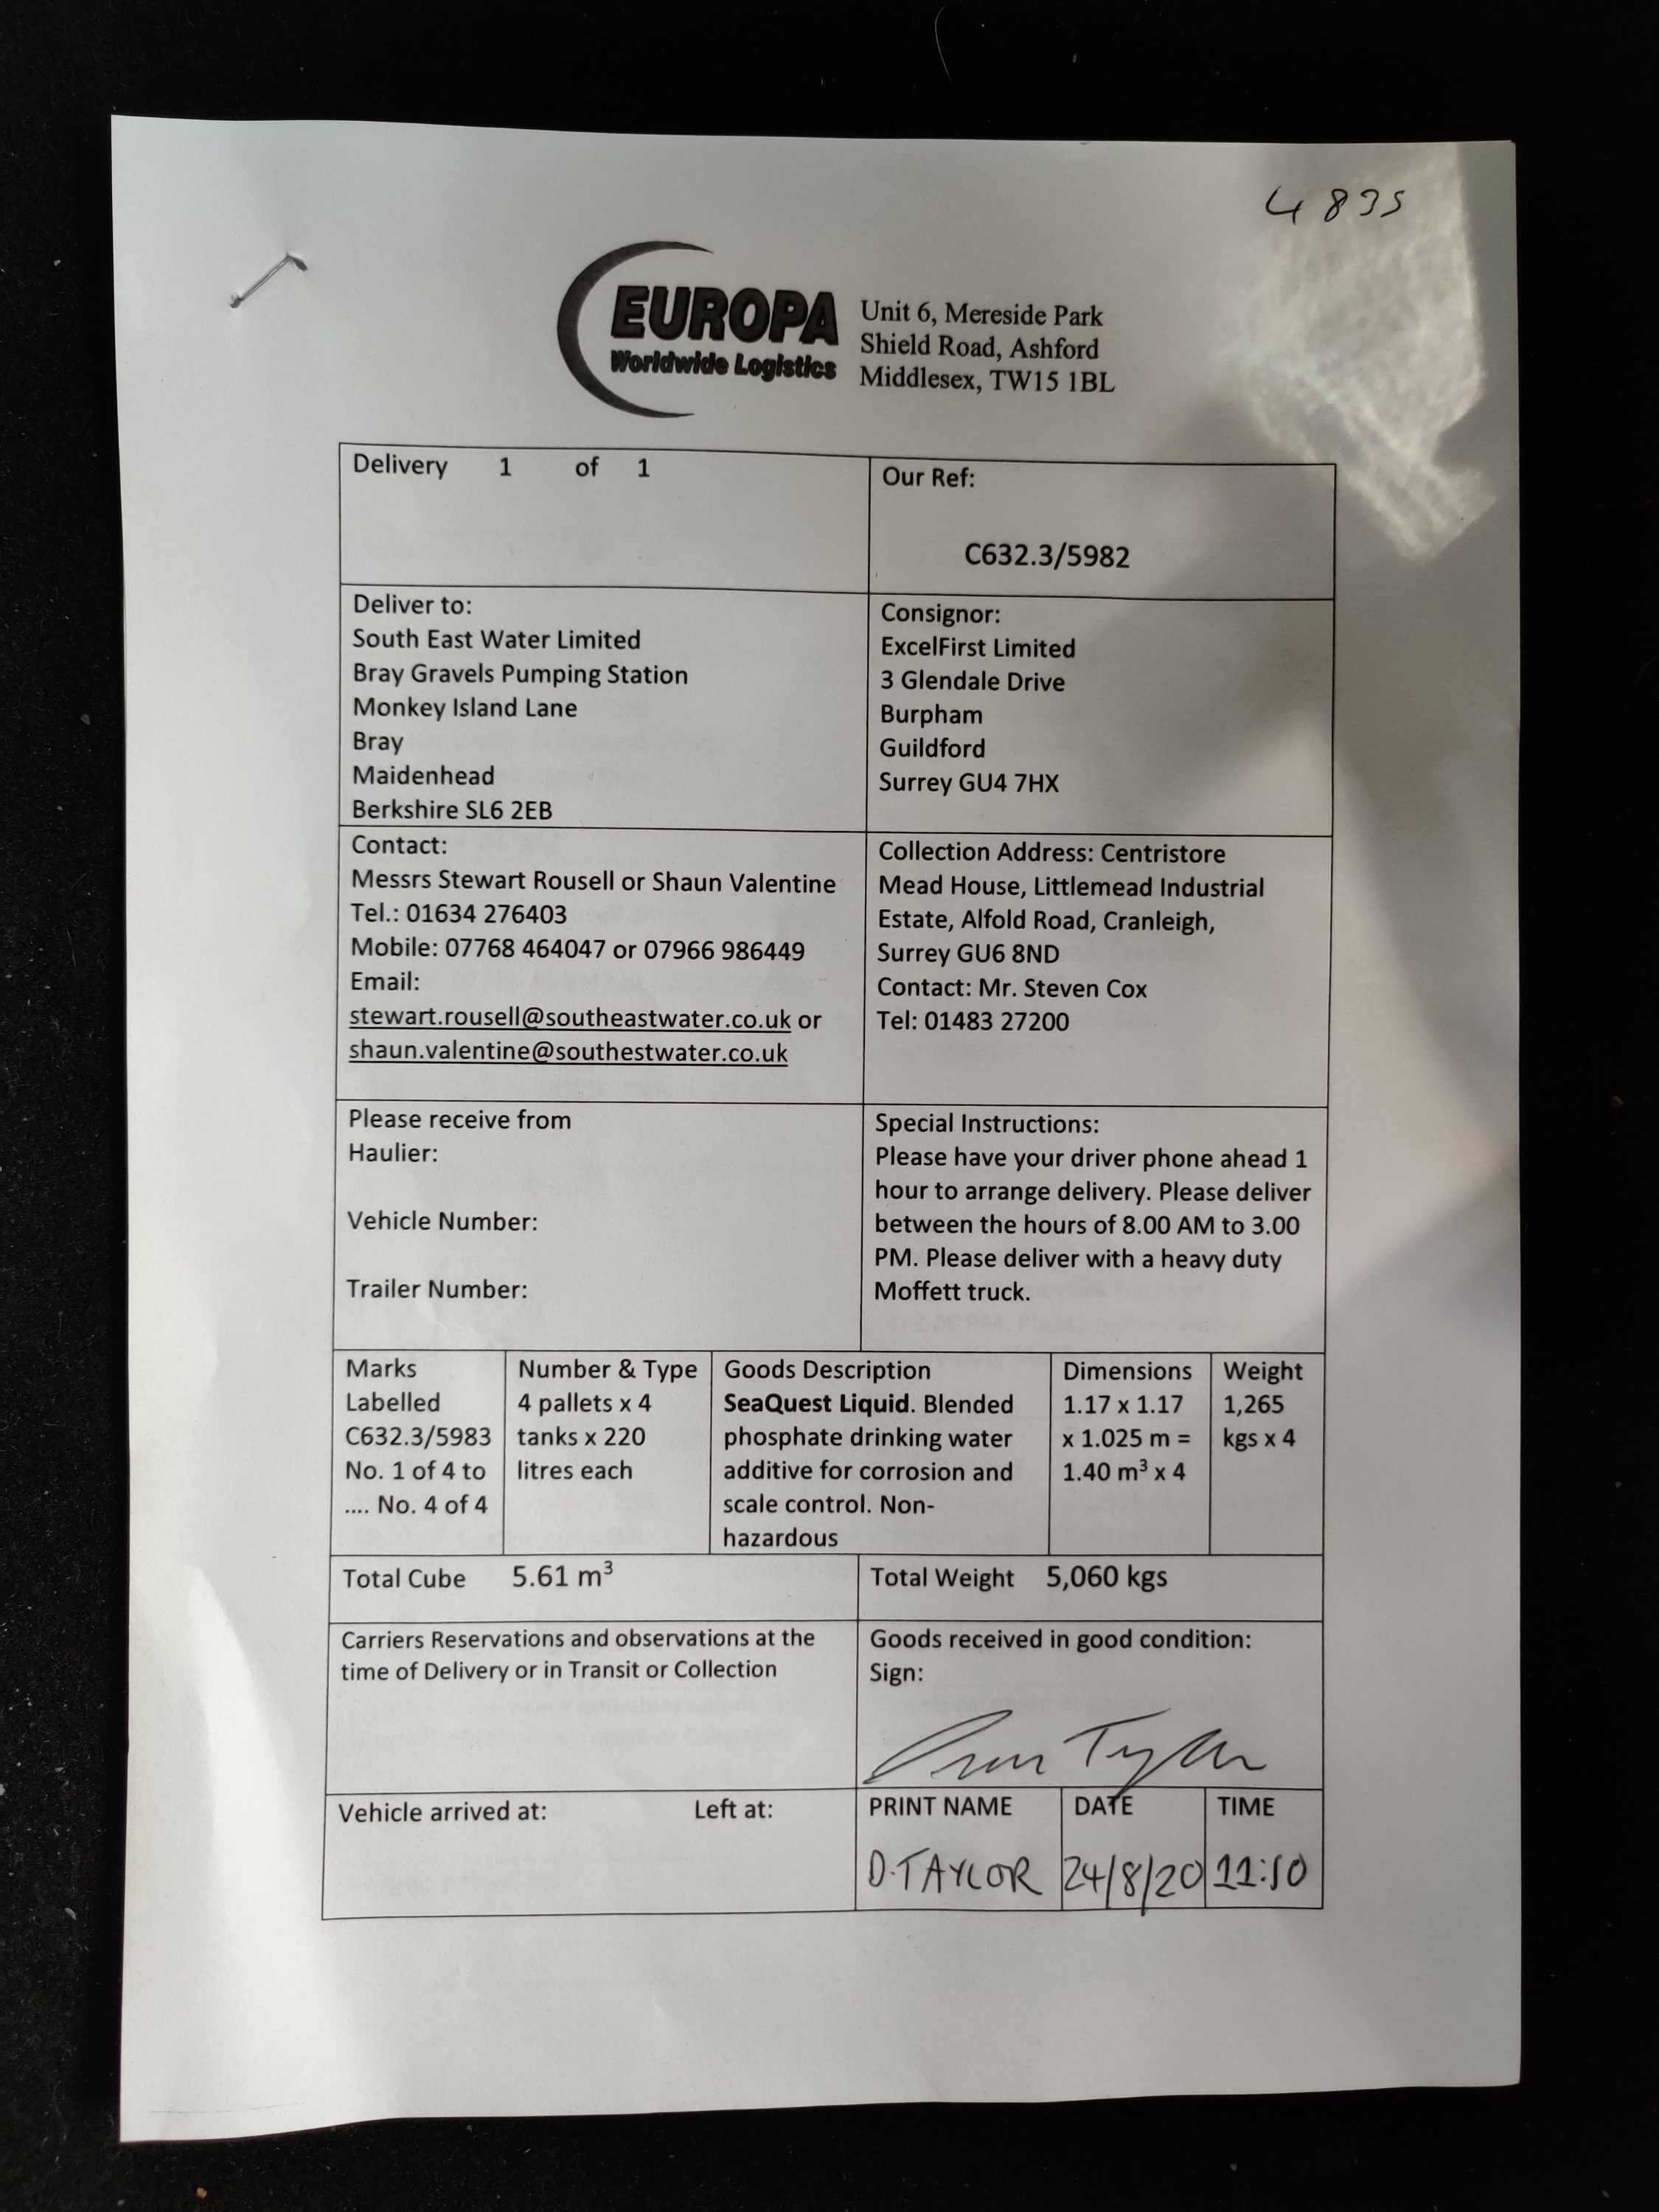 4835
EUROPA
Worldwide Logistics
Unit 6, Mereside Park
Shield Road, Ashford
Middlesex, TW15 1BL
Delivery 1 of 1
Our Ref:
C632.3/5982
Deliver to:
South East Water Limited
Bray Gravels Pumping Station
Monkey Island Lane
Bray
Maidenhead
Berkshire SL6 2EB
Consignor:
ExcelFirst Limited
3 Glendale Drive
Burpham
Guildford
Surrey GU4 7HX
Contact:
Messrs Stewart Rousell or Shaun Valentine
Tel.: 01634 276403
Mobile: 07768 464047 or 07966 986449
Email:
stewart.rousell@southeastwater.co.uk or
shaun.valentine@southestwater.co.uk
Collection Address: Centristore
Mead House, Littlemead Industrial
Estate, Alfold Road, Cranleigh,
Surrey GU6 8ND
Contact: Mr. Steven Cox
Tel: 01483 27200
Please receive from
Haulier:
Vehicle Number:
Trailer Number:
Special Instructions:
Please have your driver phone ahead 1
hour to arrange delivery. Please deliver
between the hours of 8.00 AM to 3.00
PM. Please deliver with a heavy duty
Moffett truck.
Marks
Labelled
C632.3/5983
No. 1 of 4 to
.... No. 4 of 4
Number & Type
4 pallets x 4
tanks x 220
litres each
Goods Description
SeaQuest Liquid. Blended
phosphate drinking water
additive for corrosion and
scale control. Non-
hazardous
Dimensions
1.17 x 1.17
x 1.025 m =
1.40 m³ x 4
Weight
1,265
kgs x 4
Total Cube 5.61 m³
Total Weight 5,060 kgs
Carriers Reservations and observations at the
time of Delivery or in Transit or Collection
Goods received in good condition:
Sign:
Vehicle arrived at: Left at:
PRINT NAME
D.TAYLOR
DATE
24/8/20
TIME
11:50